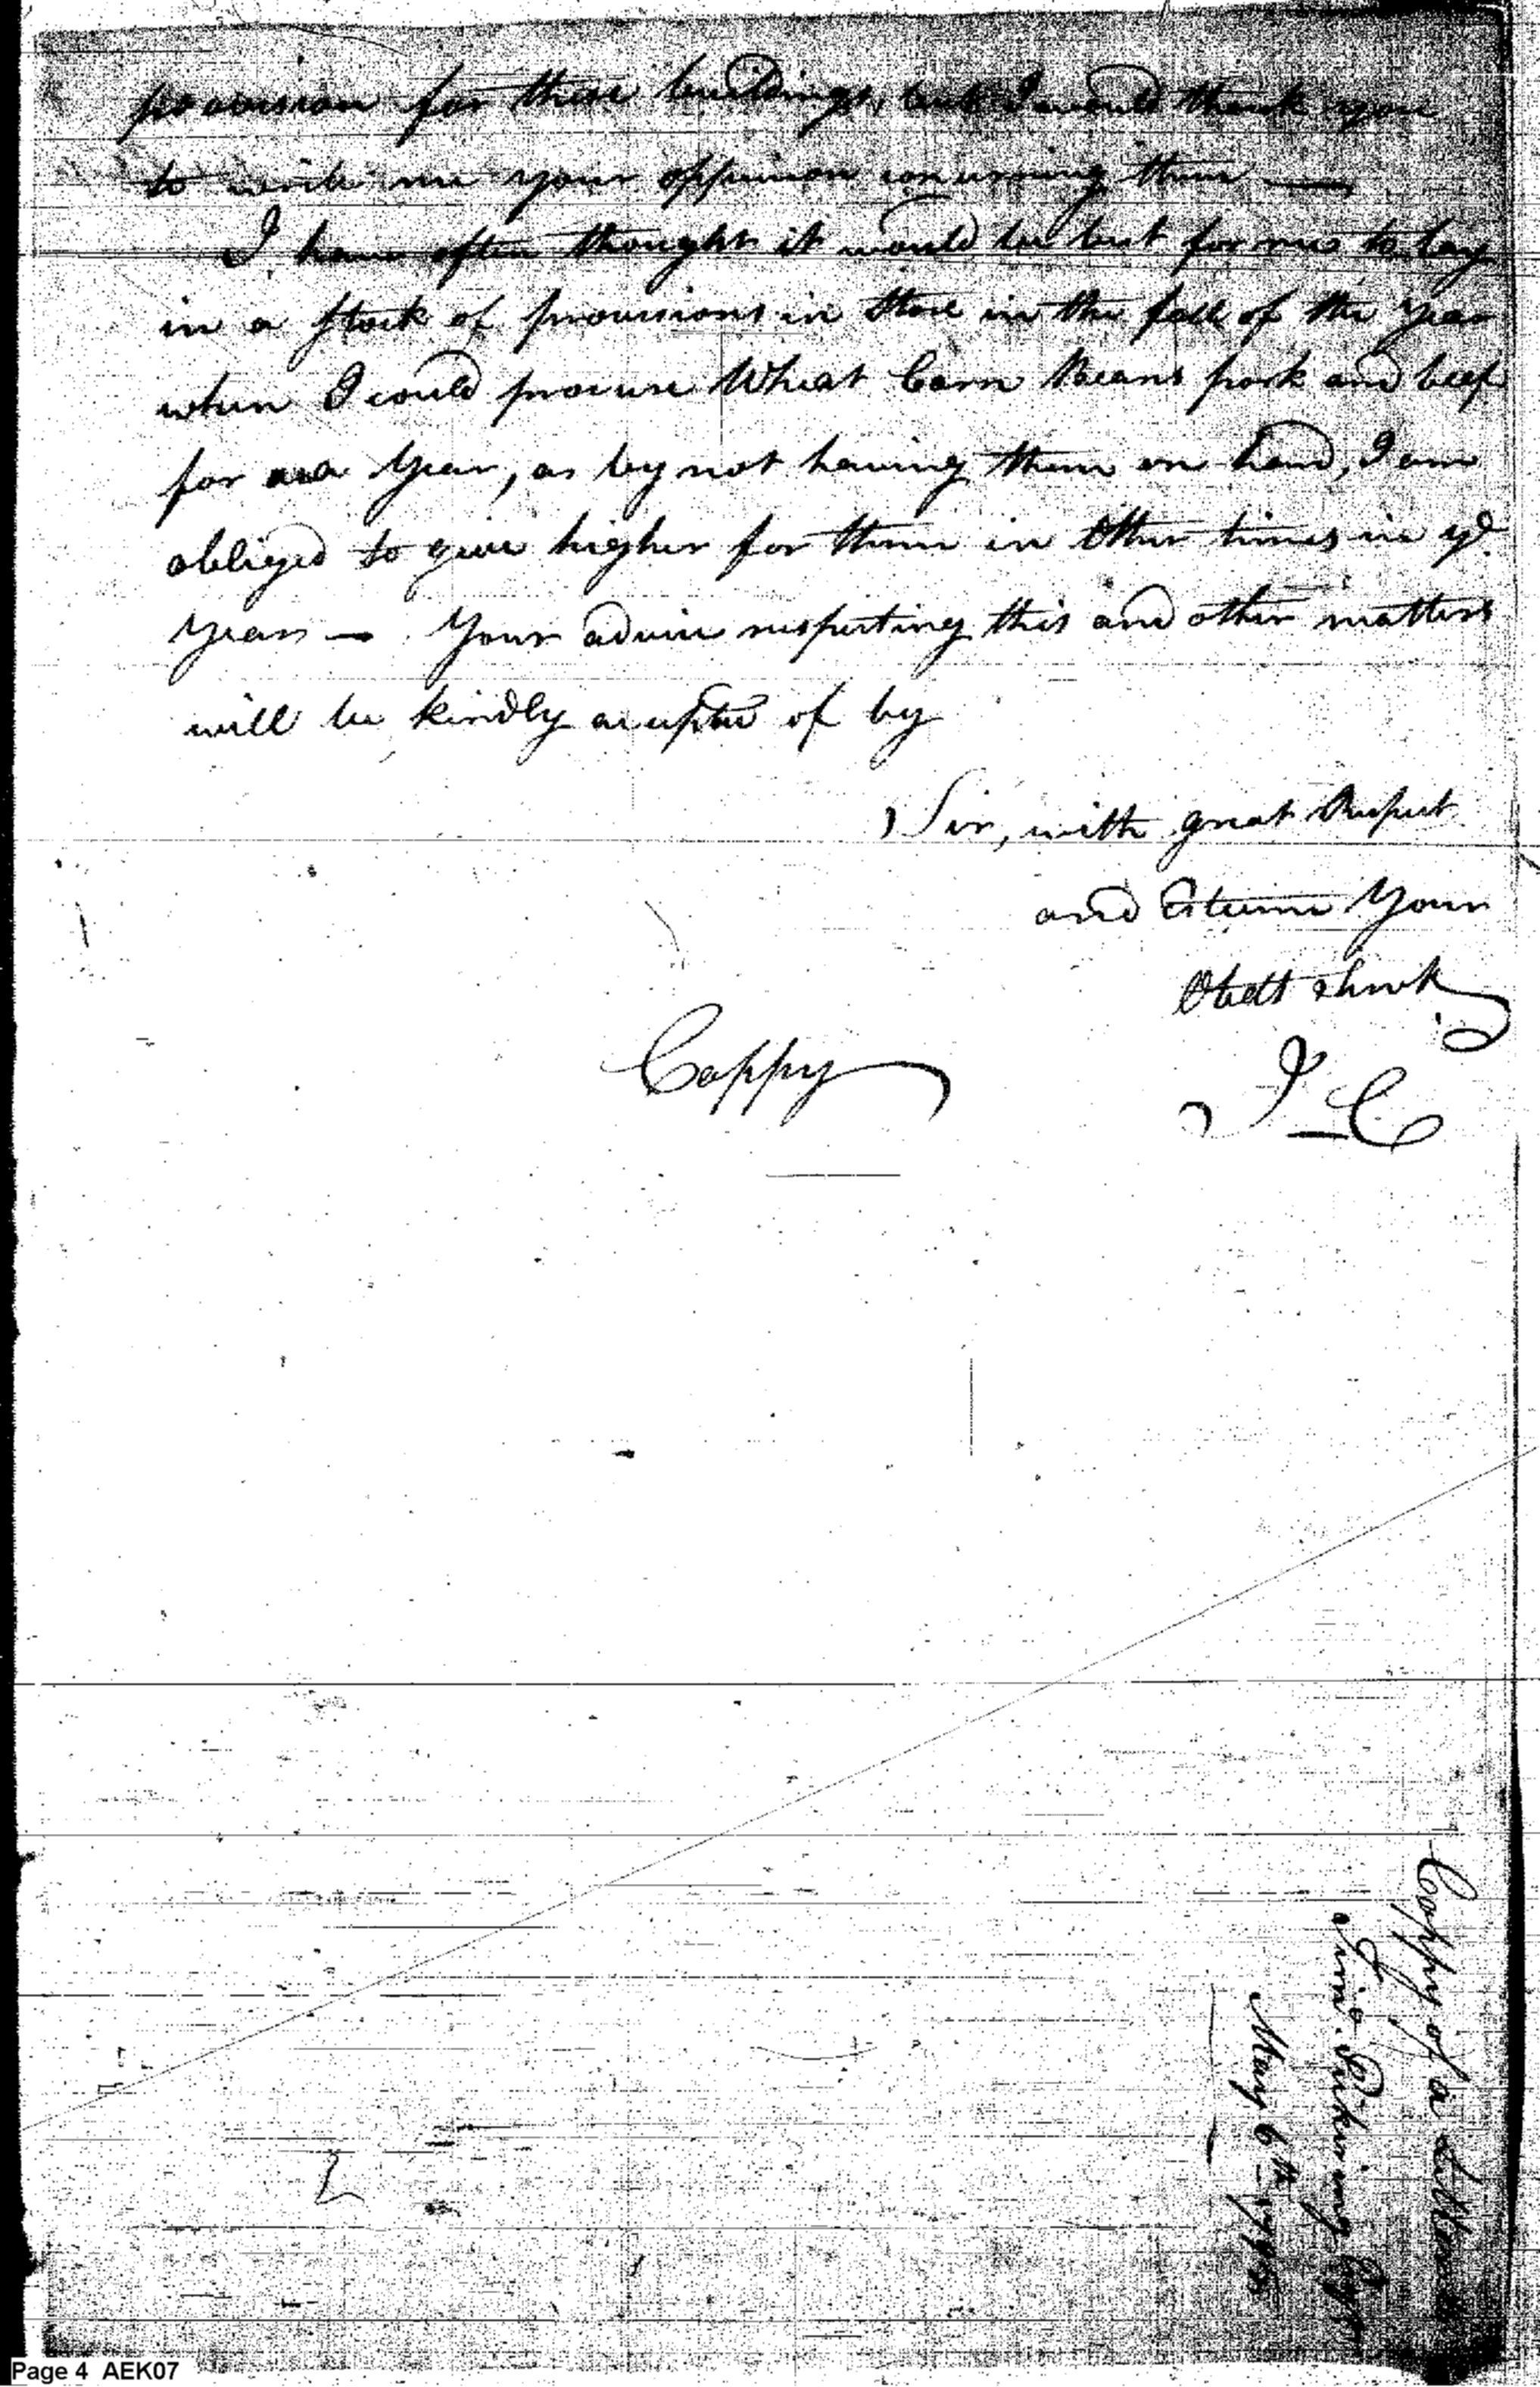 provision for these buildings, but I would thank you
to write me your oppinion concerning them —
I have often thought it would be best for me to lay
in a stock of provisions in Store in the fall of the Year
when I could procure Wheat Corn Beans pork and beef
for a Year, as by not having them on hand, I am
obliged to give higher for them in Other times in ye
Year — Your advice respecting this and other matters
will be kindly accepted of by
Sir, with great Respect
and Esteem Your
Obedt
Coppy
I C
Coppy of a Letter
Pickering
May 6th 1795
Page 4 AEK07